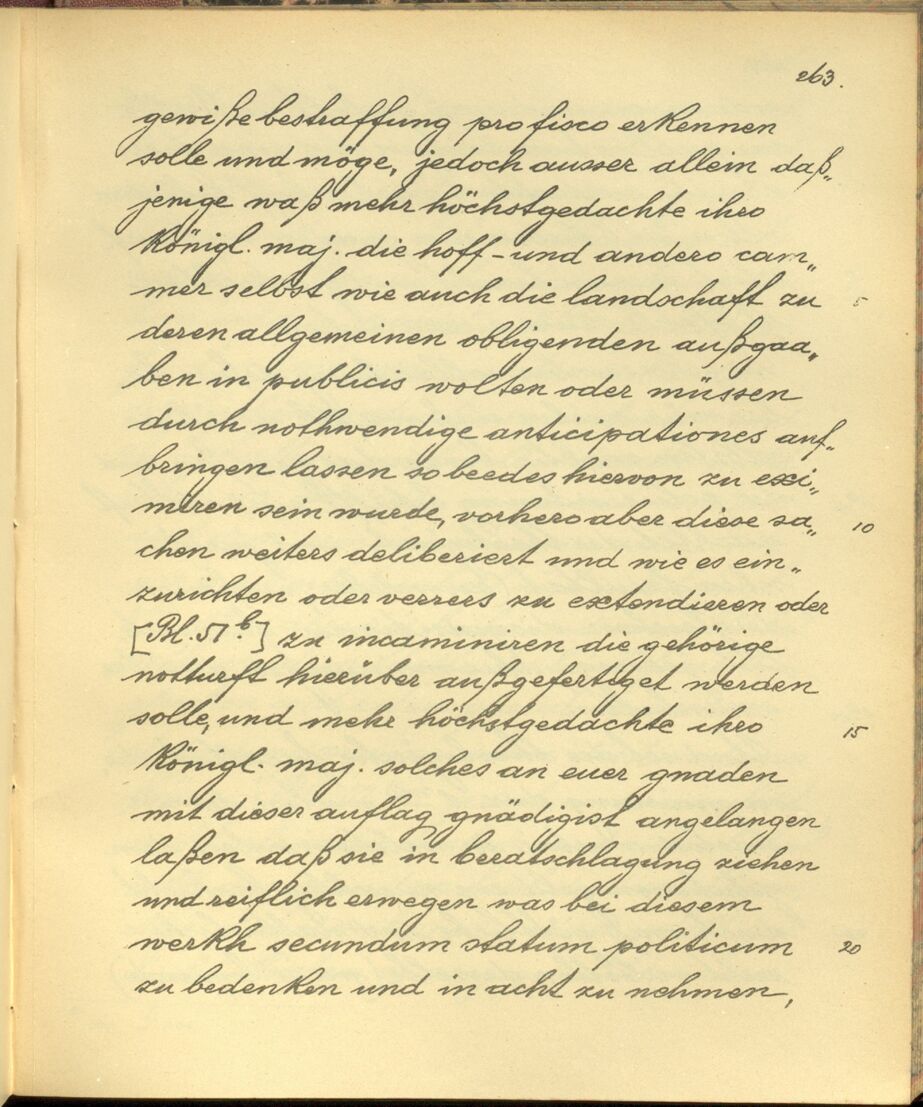 263.
gewiße bestraffung pro fisco erkennen
solle und möge, jedoch ausser allein daß„
jenige waß mehr höchstgedachte ihro
Königl. maj. die hoff- und andero cam„
mer selbst wie auch die landschaft zu 5
deren allgemeinen obligenden außgaa„
ben in publicis wolten oder müssen
durch nothwendige anticipationes auf„
bringen lassen so beedes hiervon zu exi„
miren sein wurde, vorhero aber diese sa„ 10
chen weiters deliberiert und wie es ein„
zurichten oder verrers zu extendieren oder
[Bl. 51 b.] zu incaminiren die gehörige
notturft hierüber außgefertiget werden
solle, und mehr höchstgedachte ihro 15
Königl. maj. solches an euer gnaden
mit dieser auflag gnädigist angelangen
laßen daß sie in beratschlagung ziehen
und reiflich erwegen was bei diesem
werkh secundum statum politicum 20
zu bedenken und in acht zu nehmen,